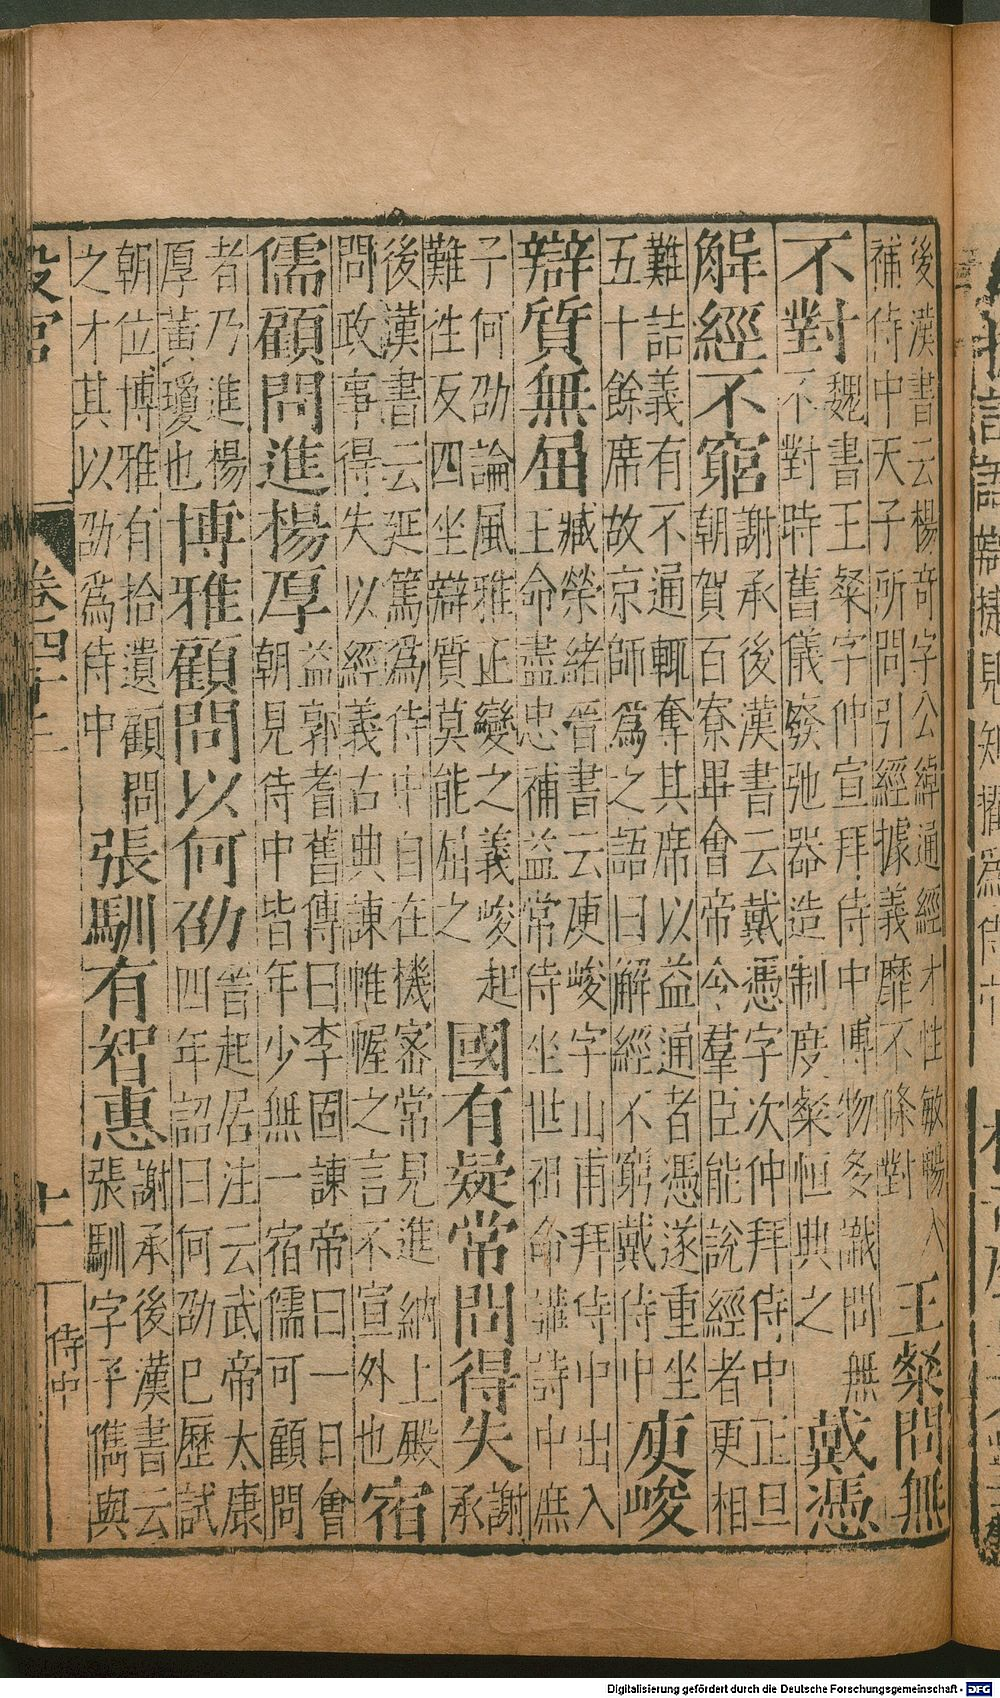 後漢書云楊竒字公緯通經才性敏暢入
補侍中天子所問引經據義靡不條對
王粲問無
不對
魏書王粲字仲宣拜侍中博物多識問無
不對時舊儀廢弛器造制度粲恒典之
戴憑
解經不窮
謝承後漢書云戴憑字次仲拜侍中正旦
朝賀百寮畢會帝令羣臣能說經者更相
難詰義有不通輒奪其席以益通者憑遂重坐
五十餘席故京師爲之語曰解經不窮戴侍中
庾峻
辯質無屈
臧榮緒晉書云庾峻字山甫拜侍中出入
王命盡忠補益常侍坐世祖命講詩中庶
子何劭論風雅正變之義峻起
難往反四坐辯質莫能屈之
國有疑常問得失
謝
承
後漢書云延篤爲侍中自在機密常見進納上殿
問政事得失以經義古典諫帷幄之言不宣外也
宿
儒顧問進楊厚
益郭耆舊傳曰李固諫帝曰一日會
朝見侍中皆年少無一宿儒可顧問
者乃進楊
厚黃瓊也
博雅顧問以何劭
晉起居注云武帝太康
四年詔曰何劭巳歷試
朝位博雅有拾遺顧問
之才其以劭爲侍中
張馴有智惠
謝承後漢書云
張馴字子儁與
設官
卷四十二
十一
侍中
Digitalisierung gefördert durch die Deutsche Forschungsgemeinschaft - DFG